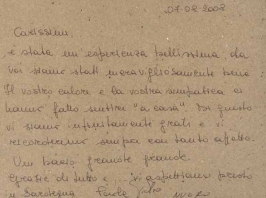 07-08-2008
Carissimi,
è stata un'esperienza bellissima, da
voi siamo stati meravigliosamente bene
Il vostro calore e la vostra simpatia ci
hanno fatto sentire "a casa". Di questo
vi siamo infinitamente grati e vi
ricorderemo sempre con tanto affetto.
Un bacio grande grande.
Grazie di tutto e ... Vi aspettiamo presto
in Sardegna